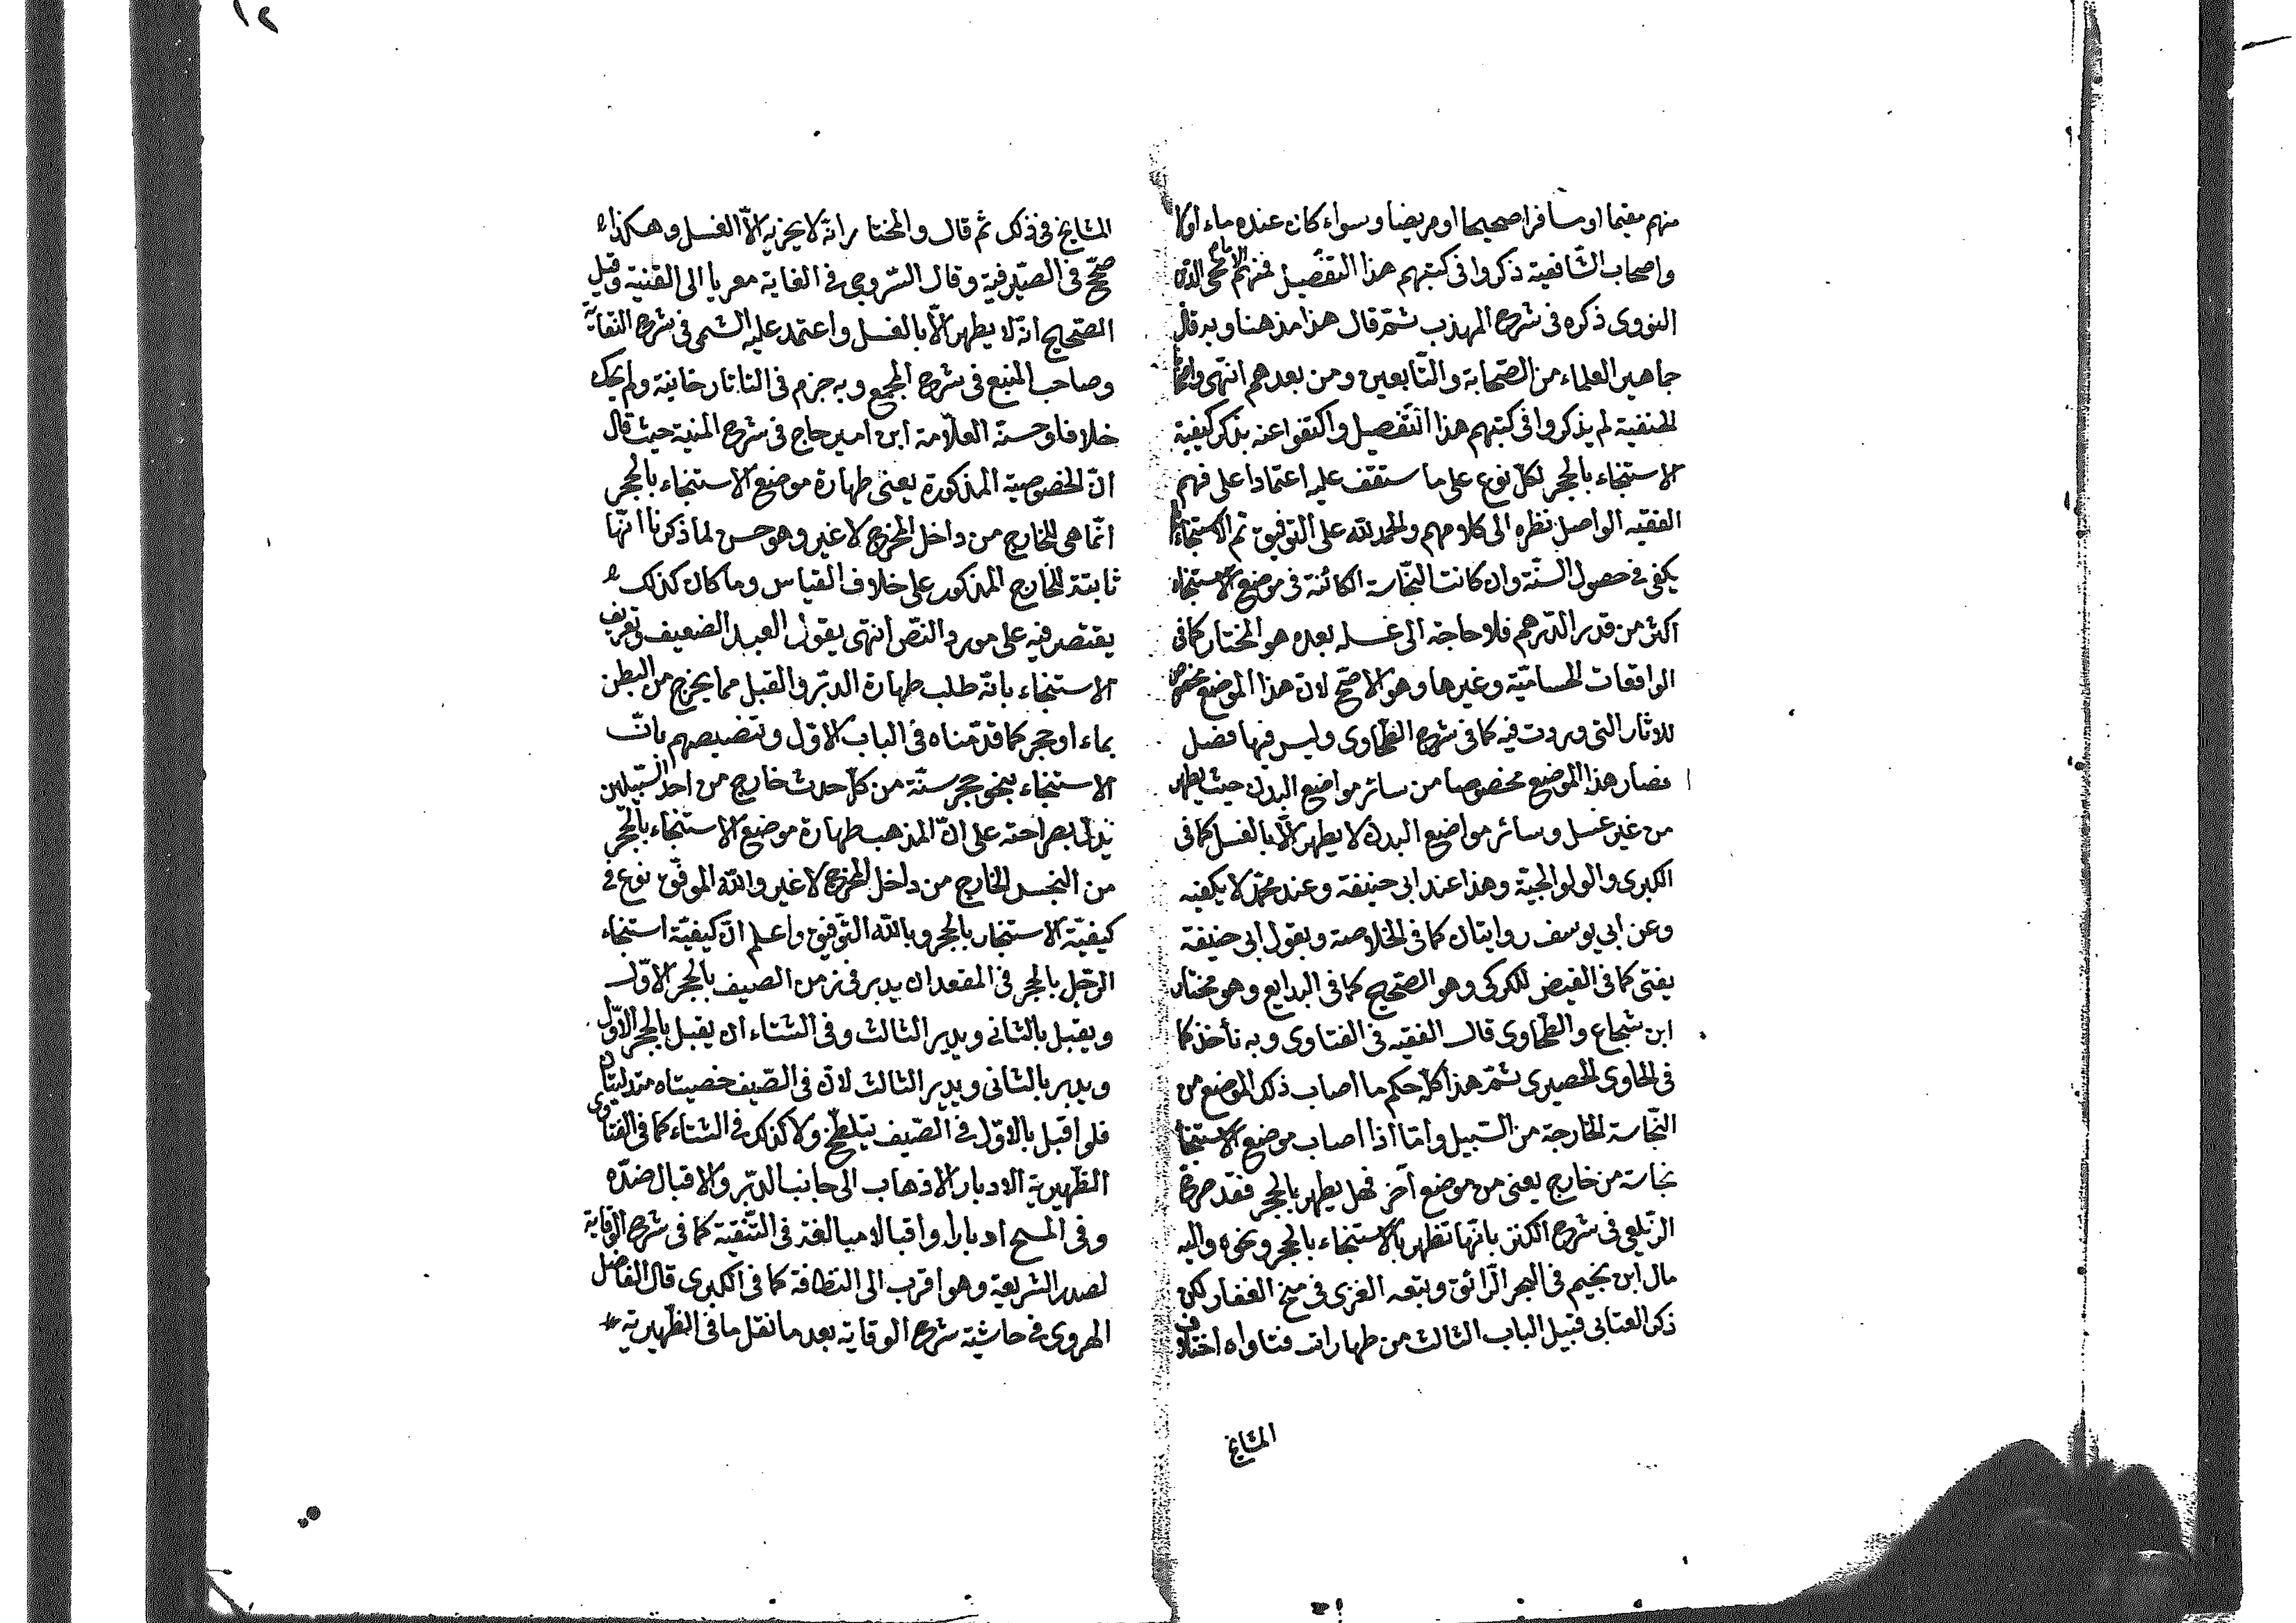 ١٢
منهم مقيما او مسافرا صحيحا او مريضا وسواء كان عنده ماء اولا
واصحاب الشافعية ذكروا في كتبهم هذا التفصيل فمنهم الامام محي الدين
النووى ذكره في شرح المهذب ثمّ قال هذا مذهبنا وبه قال
جماهير العلماء من الصّحابة والتّابعين ومن بعدهم انتهى واصحابنا
الحنفية لم يذكروا في كتبهم هذا التّفصيل واكتفوا عنه بذكر كيفية
الاستنجاء بالحجر لكلّ نوع على ما ستقف عليه اعتمادا على فهم
الفقيه الواصل نظره الى كلامهم والحمد لله على التوفيق ثم الاستنجاء
يكفى في حصول السنّة وان كانت النجّاسة الكائنة في موضع الاستنجاء
اكثر من قدر الدّرهم فلا حاجة الى غسله بعده هو المختار كما فى
الواقعات الحساميّة وغيرها وهو الاصحّ لانّ هذا الموضع مخصوص
للاثار التى وردت فيه كما فى شرح الطّحاوى وليس فيها فصل
فصار هذا الموضع مخصوصا من سائر مواضع البدن حيث يطهر
من غير غسل وسائر مواضع البدن لا يطهر الّا بالغسل كما فى
الكبرى والولوالجيّة وهذا عند ابى حنيفة وعند محمّد لا يكفيه
وعن ابي يوسف روايتان كما فى الخلاصة وبقول ابى حنيفة
يفتى كما فى الفيض للكركى وهو الصّحيح كما فى البدايع وهو مختار
ابن شجاع والطّحاوى قال الفقيه فى الفتاوى وبه نأخذ كما
فى الحاوى الحصيرى ثمّ هذا كلّه حكم ما اصاب ذلك الموضع من
النّجاسة الخارجة من السّبيل وامّا اذا اصاب موضع الاستنجا
نجاسة من خارج يعنى من موضع آخر فهل يطهر بالحجر فقد صرّح
الزّيلعى فى شرح الكنز بانّها تطهر بالاستنجاء بالحجر ونحوه واليه
مال ابن نجيم فى البحر الرّائق وتبعه الغزى فى منح الغفار لكن
ذكر العتابى قبيل الباب الثالث من طهارات فتاواه اختلاف
المشايخ
المشايخ فى ذلك ثم قال والمختار انّه لا يجزيه الّا الغسل وهكذا
صحّح فى الصّيرفيّة وقال السّروجى فى الغاية معزيا الى القنية وقيل
الصّحيح انّه لا يطهر الّا بالغسل واعتمد عليه الشمنى فى شرح النّقاية
وصاحب المنبع فى شرح المجمع وبه جزم فى التاتارخانية ولم يحك
خلافا وحسنّه العلّامة ابن امير حاج فى شرح المنية حيث قال
انّ الخصوصيّة المذكورة يعنى طهارة موضع الاستنجاء بالحجر
انّما هى للخارج من داخل المخرج لا غير وهو حسن لما ذكرنا انّها
ثابتة للخارج المذكور على خلاف القياس وما كان كذلك
يقتصر فيه على مورد النصّ انتهى يقول العبد الضعيف وتعريف
الاستنجاء بانّه طلب طهارة الدبّر والقبل مما يخرج من البطن
بماء او حجر كما قدّمناه فى الباب الاوّل وتنصيصهم بانّ
الاستنجاء بنحو حجر سنّة من كلّ حدث خارج من احد السّبيلين
يدلّ بصراحته على انّ المذهب طهارة موضع الاستنجاء بالحجر
من النجس الخارج من داخل المخرج لا غير والله الموفّق نوع فى
كيفيّة الاستنجاء بالحجر وبالله التّوفيق واعلم انّ كيفيّة استنجاء
الرّجل بالحجر فى المقعد ان يدبر فى زمن الصيف بالحجر الاوّل
ويقبل بالثانى ويدبر الثالث وفى الشتاء ان يقبل بالحجر الاوّل
ويدبر بالثانى ويدبر الثالث لانّ فى الصّيف خصيتاه متدليتان
فلو اقبل بالاوّل فى الصّيف يتلطّخ ولا كذلك فى الشتاء كما فى الفتاوى
الظّهيرية الادبار الاذهاب الى جانب الدبّر والاقبال ضدّه
وفى المسح ادبارا واقبالا مبالغة فى التّنقية كما فى شرح الوقاية
لصدر الشريعة وهو اقرب الى النظافة كما فى الكبرى قال الفاضل
الهروى فى حاشية شرح الوقاية بعد ما نقل ما فى الظّهيرية